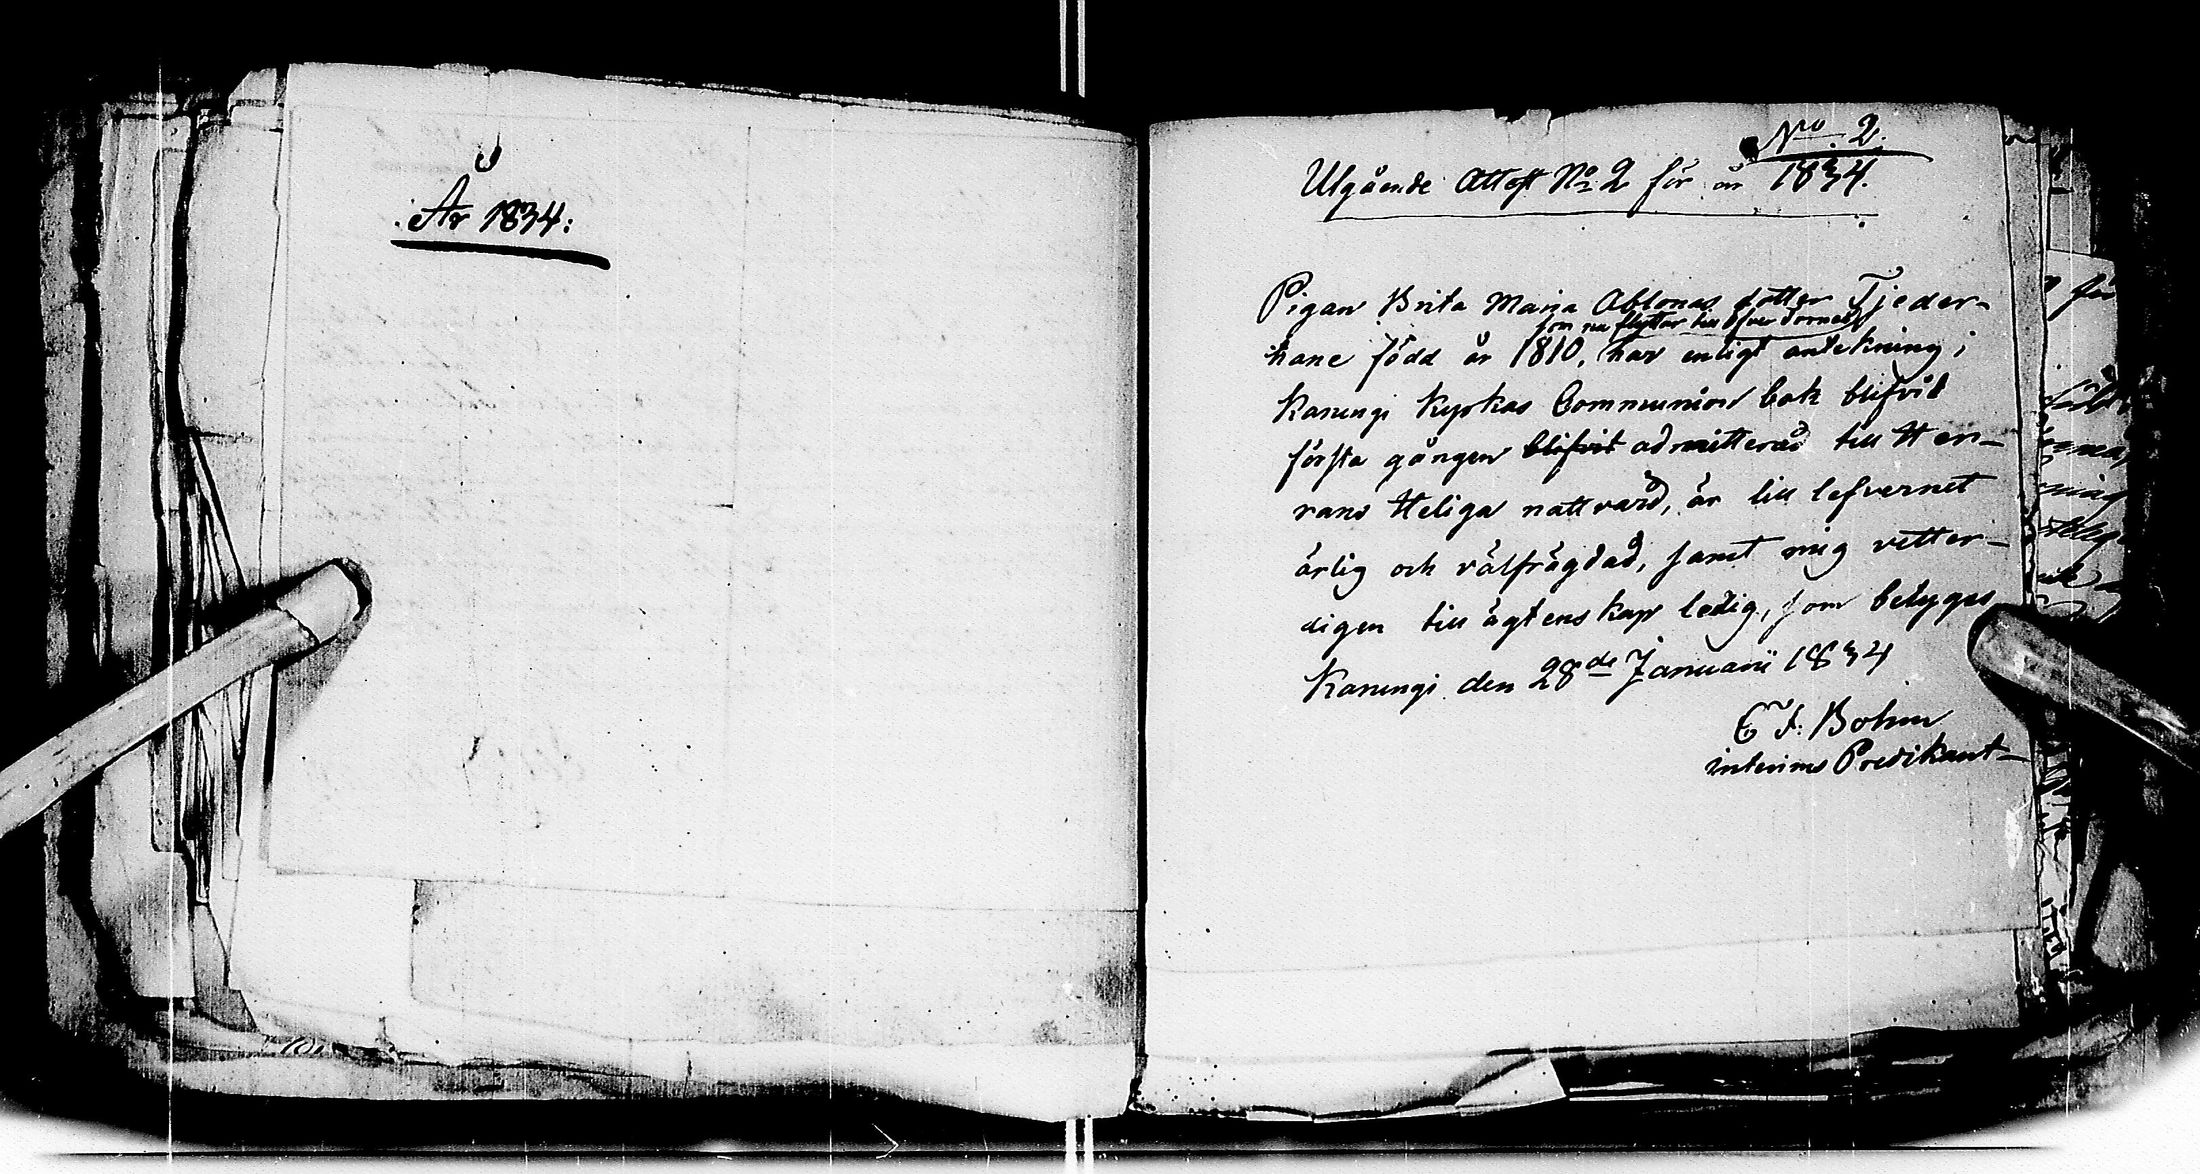 År 1834:
No. 2.
Utgående Attest No 2 för år 1834.
Pigan Brita Maria Ablonas dotter Tjeder-
som nu flyttar till Öfver Torneå
hane född år 1810, har enligt antekning i
Karungi Kyrkas Communion bok blifvit
första gången blifvit admitterad till Her-
rans Heliga nattvard, är till lefvernet
ärlig och välfrägdad, samt mig vetter-
digen till ägtenskap ledig, som betygas
Karungi den 28de Januarii 1834
E F: Bohm
interims Predikant